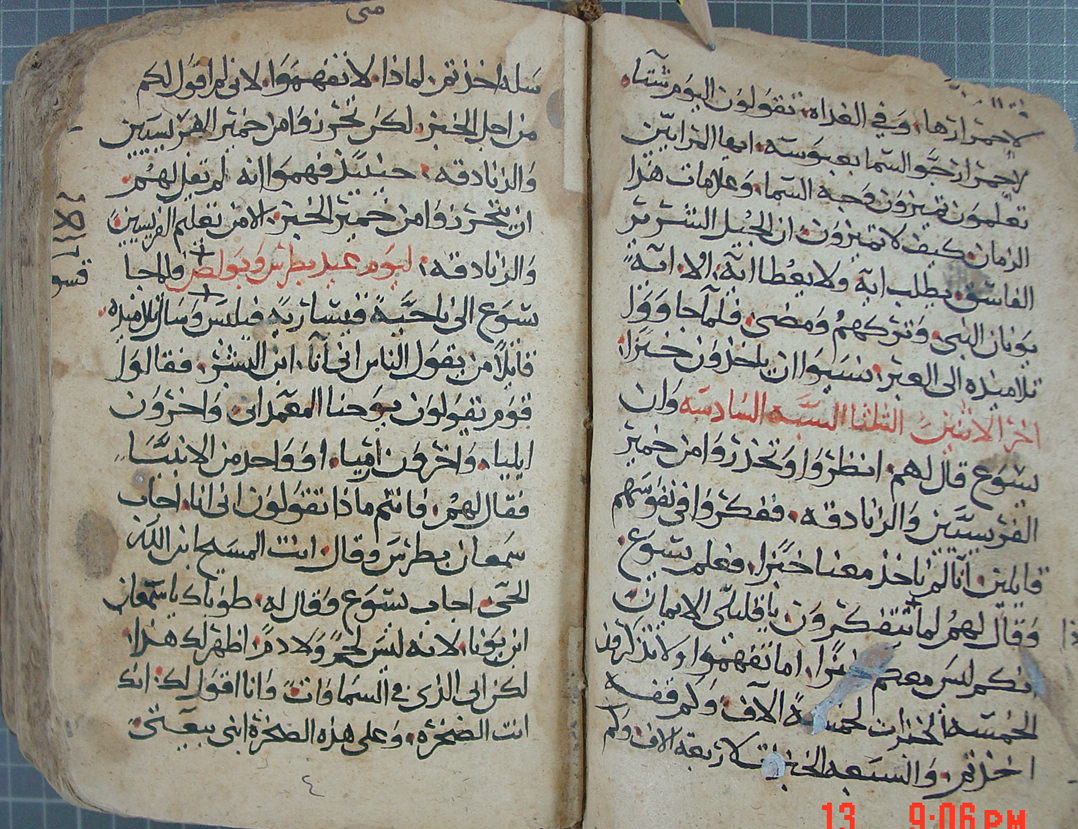 لاحمرارها. وفي الغداه. تقولون اليوم شتاء.
لاحمرار جو السما بعبوسه. ايها المرايين
تعلمون تميزون وجه السما. وعلامات هذا
الزمان كيف لا تميزون. ان الجيل الشرير
الفاسق يطلب ايه ولا يعطا ايه. الا. ايه
يونان النبي. وتركهم ومضى. فلما جا وول
تلاميذه الى العبر. نسيوا ان ياخذون خبزا.
اخر الاثنين الثلثا السبه السادسه وان
يسوع قال لهم. انظروا وتحذروا من خمير
الفريسيين والزنادقه. ففكروا في نفوسهم
قايلين. اننا لم ناخذ معنا خبزا. فعلم يسوع.
وقال لهم لما تتفكرون يا قليلي الايمان
انكم ليس معكم خبزا. اما تفهموا ولا تذكرون
الخمسه الخبزات لخمسه الاف. ولم قفه
اخذتم. والسبعه الخبزات لاربعه الاف وكم
متى
سله اخذتم. لماذا. لا تفهموا. لاني لم اقول لكم
من اجل الخبز. لكن تحرزوا من خمير الفريسيين
والزنادقه. حينيذ فهموا انه لم يقل لهم.
ان يتحرزوا من خمير الخبز. الا من تعليم الفريسيين
والزنادقه. ليوم عيد بطرس وبولص فلما جا
يسوع الى ناحية قيساريه فيلبس وسال تلاميذه.
قايلا من يقول الناس اني انا. ابن البشر. فقالوا
قوم يقولون يوحنا المعمداني. واخرون
ايليا. واخرون ارميا. او واحد من الانبيا
فقال لهم. فانتم ماذا تقولون اني انا. اجاب
سمعان بطرس وقال. انت المسيح ابن الله
الحي. اجاب يسوع وقال له. طوباك يا سمعان
ابن يونا. لانه ليس لحم ولا دم. اظهر لك هذا.
لكن ابي الذي في السماوات. وانا اقول لك. انك
انت الصخره. وعلى هذه الصخرة ابني بيعتي
٤
13 9:06 PM